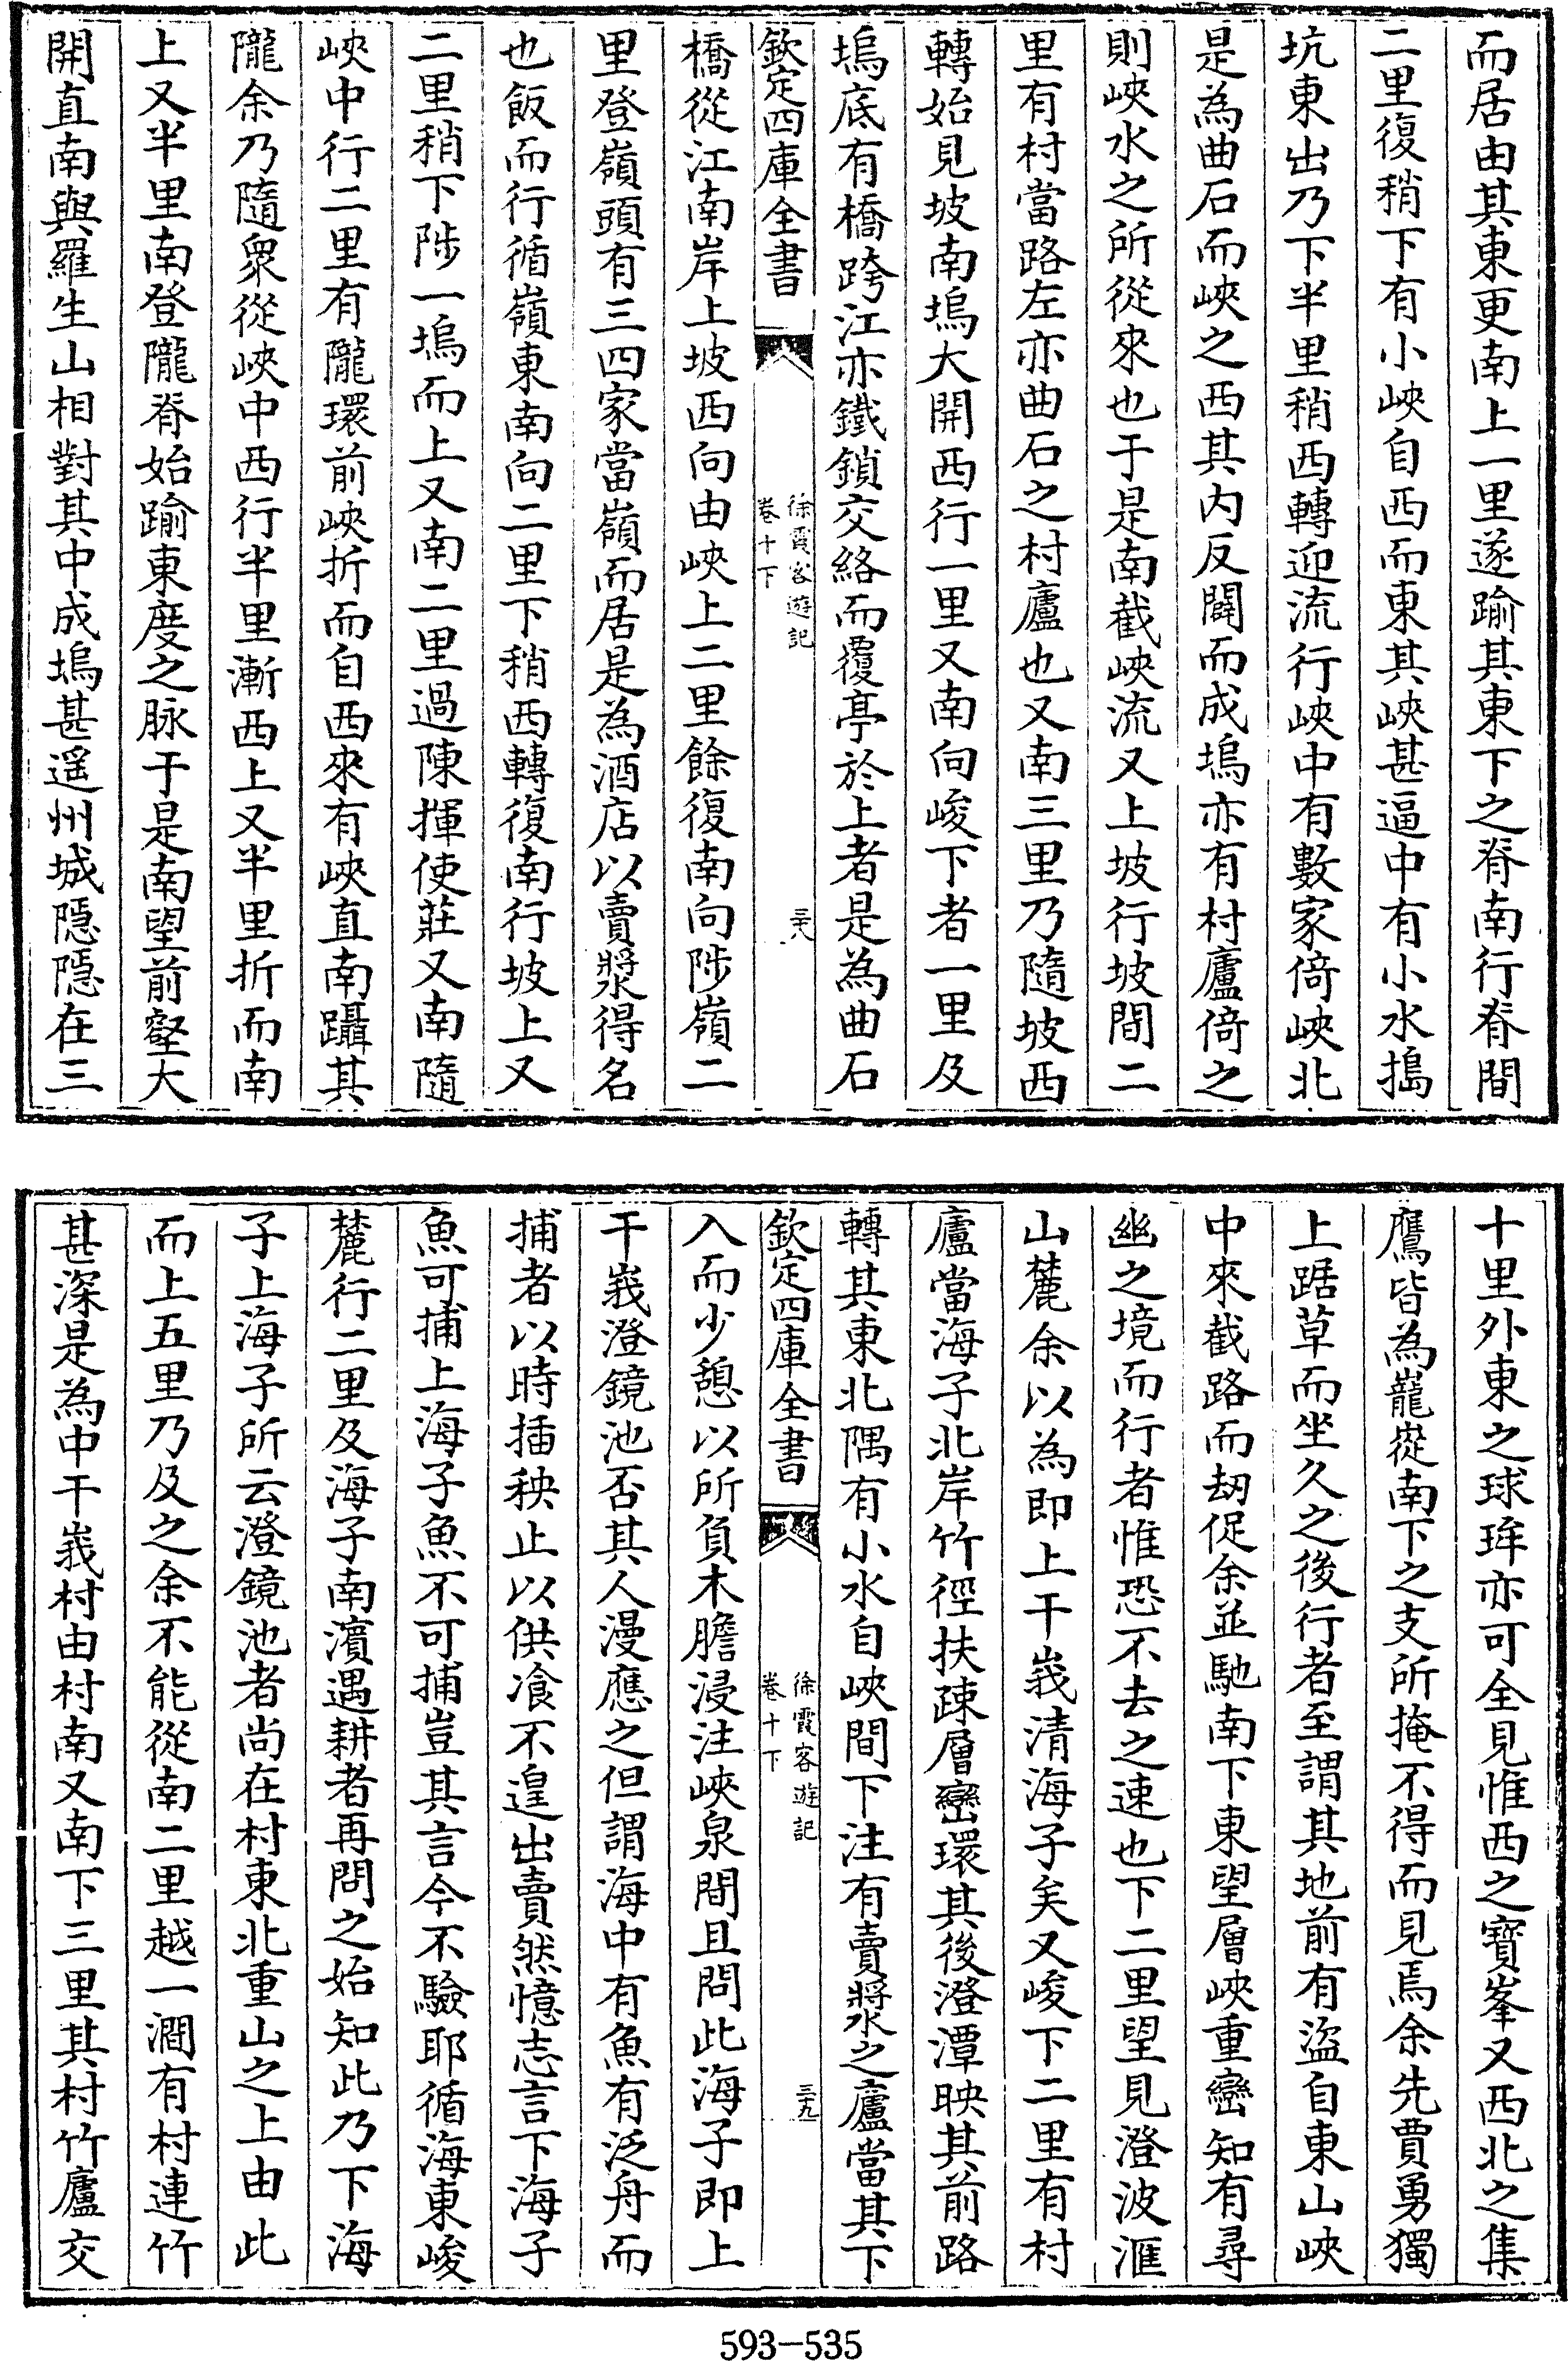 而居由其東更南上一里遂踰其東下之脊南行脊間
二里復稍下有小峽自西而東其峽甚逼中有小水搗
坑東出乃下半里稍西轉迎流行峽中有數家倚峽北
是為曲石而峽之西其内反闢而成塢亦有村廬倚之
則峽水之所從來也于是南截峽流又上坡行坡間二
里有村當路左亦曲石之村廬也又南三里乃隨坡西
轉始見坡南塢大開西行一里又南向峻下者一里及
塢底有橋跨江亦鐵鎖交絡而覆亭於上者是為曲石
欽定四庫全書
徐霞客遊記
卷十下
三十八
橋從江南岸上坡西向由峽上二里餘復南向陟嶺二
里登嶺頭有三四家當嶺而居是為酒店以賣漿得名
也飯而行循嶺東南向二里下稍西轉復南行坡上又
二里稍下陟一塢而上又南二里過陳揮使莊又南隨
峽中行二里有隴環前峽折而自西來有峽直南躡其
隴余乃隨衆從峽中西行半里漸西上又半里折而南
上又半里南登隴脊始踰東度之脉于是南望前壑大
開直南與羅生山相對其中成塢甚遥州城隱隱在三
十里外東之球琒亦可全見惟西之寶峯又西北之集
鷹皆為巃嵸南下之支所掩不得而見焉余先賈勇獨
上踞草而坐久之後行者至謂其地前有盜自東山峽
中來截路而刼促余並馳南下東望層峽重巒知有尋
幽之境而行者惟恐不去之速也下二里望見澄波滙
山麓余以為即上干峩清海子矣又峻下二里有村
廬當海子北岸竹徑扶疎層巒環其後澄潭映其前路
轉其東北隅有小水自峽間下注有賣漿之廬當其下
欽定四庫全書
徐霞客遊記
卷十下
三十九
入而少憩以所負木膽浸注峽泉間且問此海子即上
干峩澄鏡池否其人漫應之但謂海中有魚有泛舟而
捕者以時插秧止以供飡不遑出賣然憶志言下海子
魚可捕上海子魚不可捕豈其言今不驗耶循海東峻
麓行二里及海子南濵遇耕者再問之始知此乃下海
子上海子所云澄鏡池者尚在村東北重山之上由此
而上五里乃及之余不能從南二里越一澗有村連竹
甚深是為中干峩村由村南又南下三里其村竹廬交
593-535